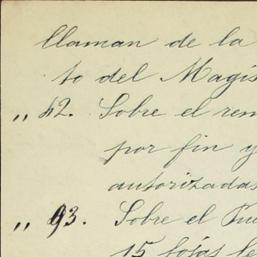 llaman de la
to del Magis
„ 42. Sobre el rem
por fin y
autorizadas
„ 93. Sobre el
15 fojas